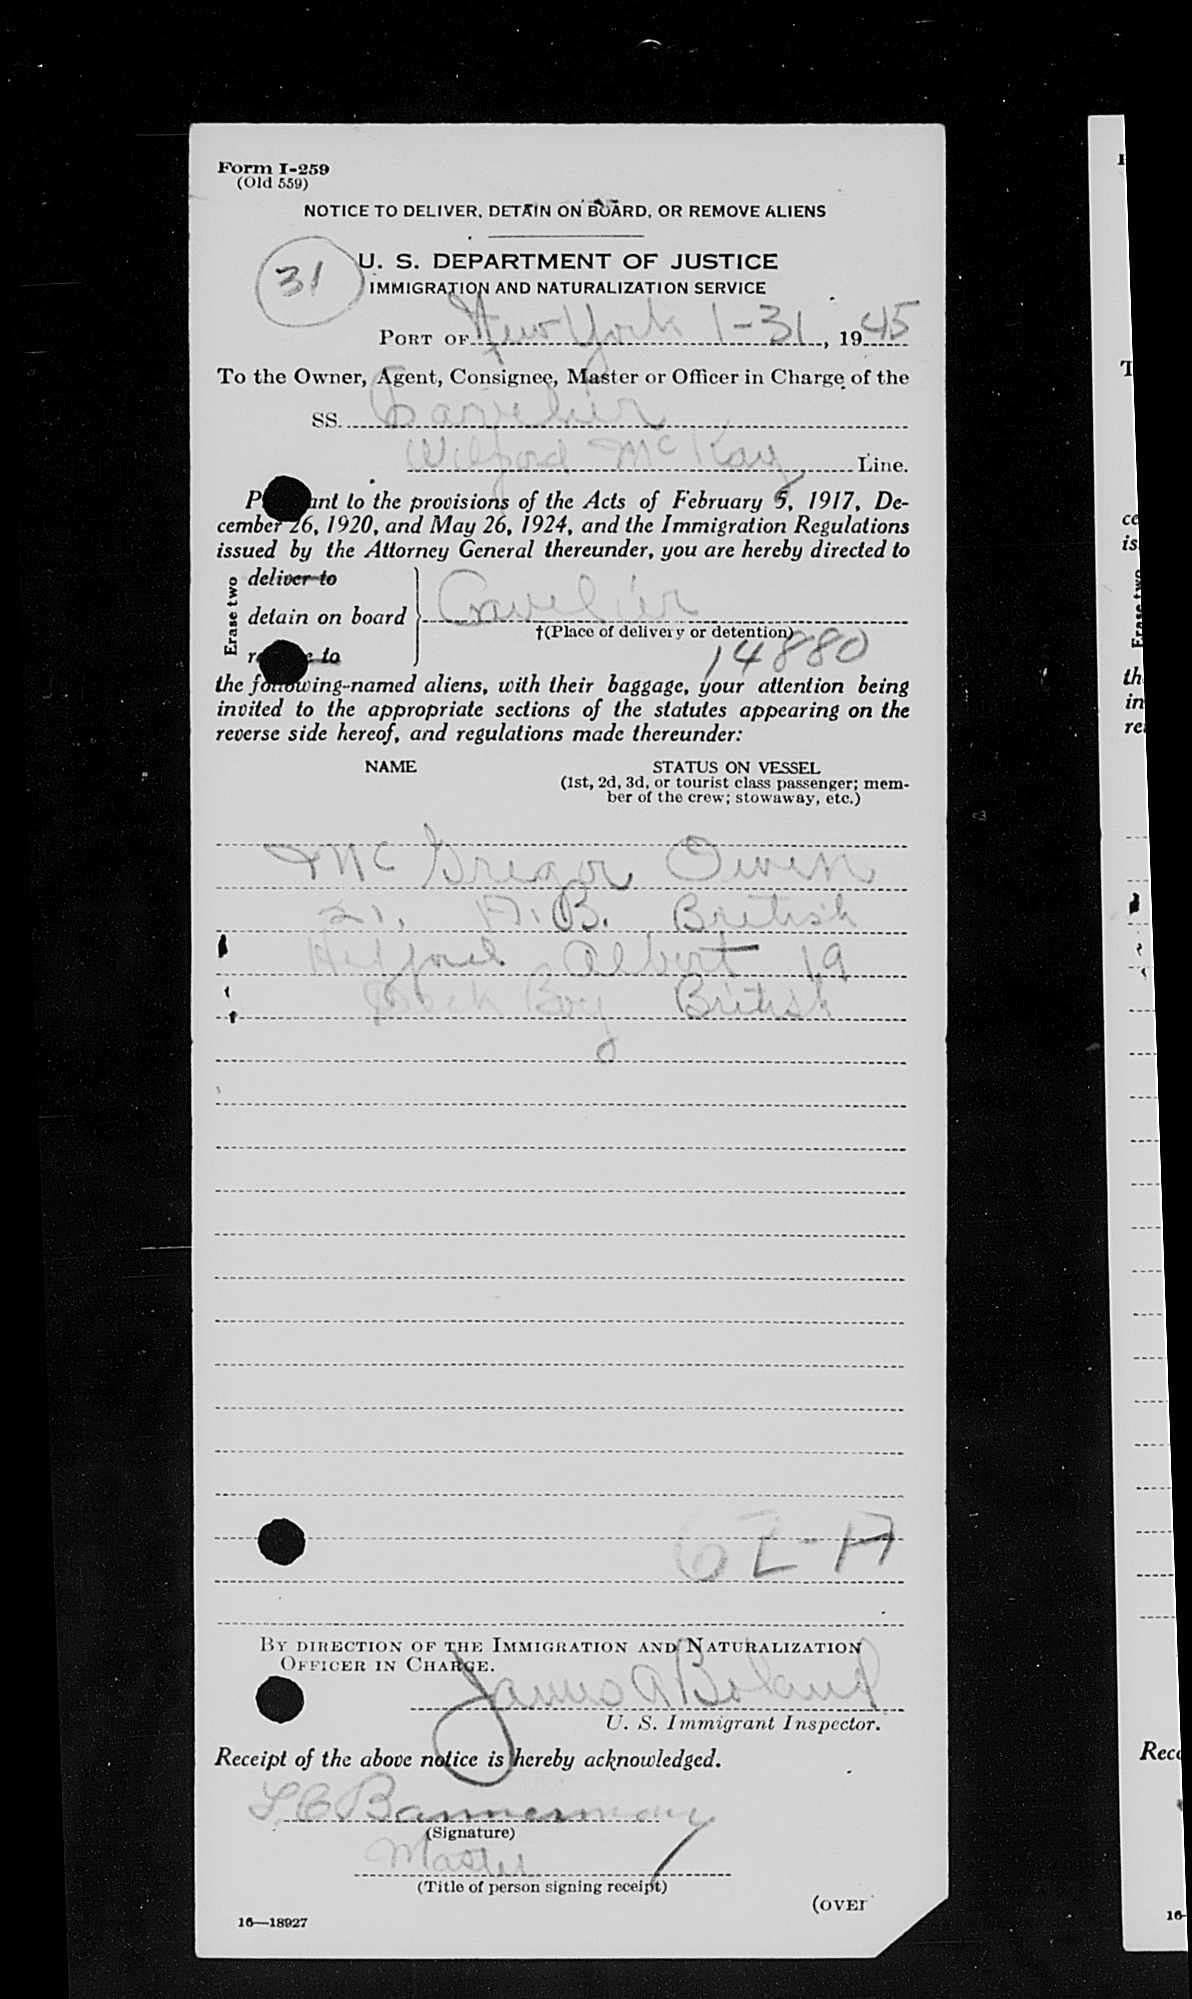 Form I-259
(Old 559)
NOTICE TO DELIVER, DETAIN ON BOARD, OR REMOVE ALIENS
31
U. S. DEPARTMENT OF JUSTICE
IMMIGRATION AND NATURALIZATION SERVICE
PORT OF New York 1-31, 1945
To the Owner, Agent, Consignee, Master or Officer in Charge of the
SS.
Wilford McKay Line.
ant to the provisions of the Acts of February 5, 1917, De-
cember 26, 1920, and May 26, 1924, and the Immigration Regulations
issued by the Attorney General thereunder, you are hereby directed to
Erase two
deliver to
detain on board Cavelier
†(Place of delivery or detention)
to
14880
the following-named aliens, with their baggage, your attention being
invited to the appropriate sections of the statutes appearing on the
reverse side hereof, and regulations made thereunder:
NAME STATUS ON VESSEL
(1st, 2d, 3d, or tourist class passenger; mem-
ber of the crew; stowaway, etc.)
McGregor Owen
21. A.B. British
Albert 19
Deck Boy British
62-A
BY DIRECTION OF THE IMMIGRATION AND NATURALIZATION
OFFICER IN CHARGE.
James A Boland
U. S. Immigrant Inspector.
Receipt of the above notice is hereby acknowledged.
Bannerman
(Signature)
Master
(Title of person signing receipt)
(OVER
16—18927